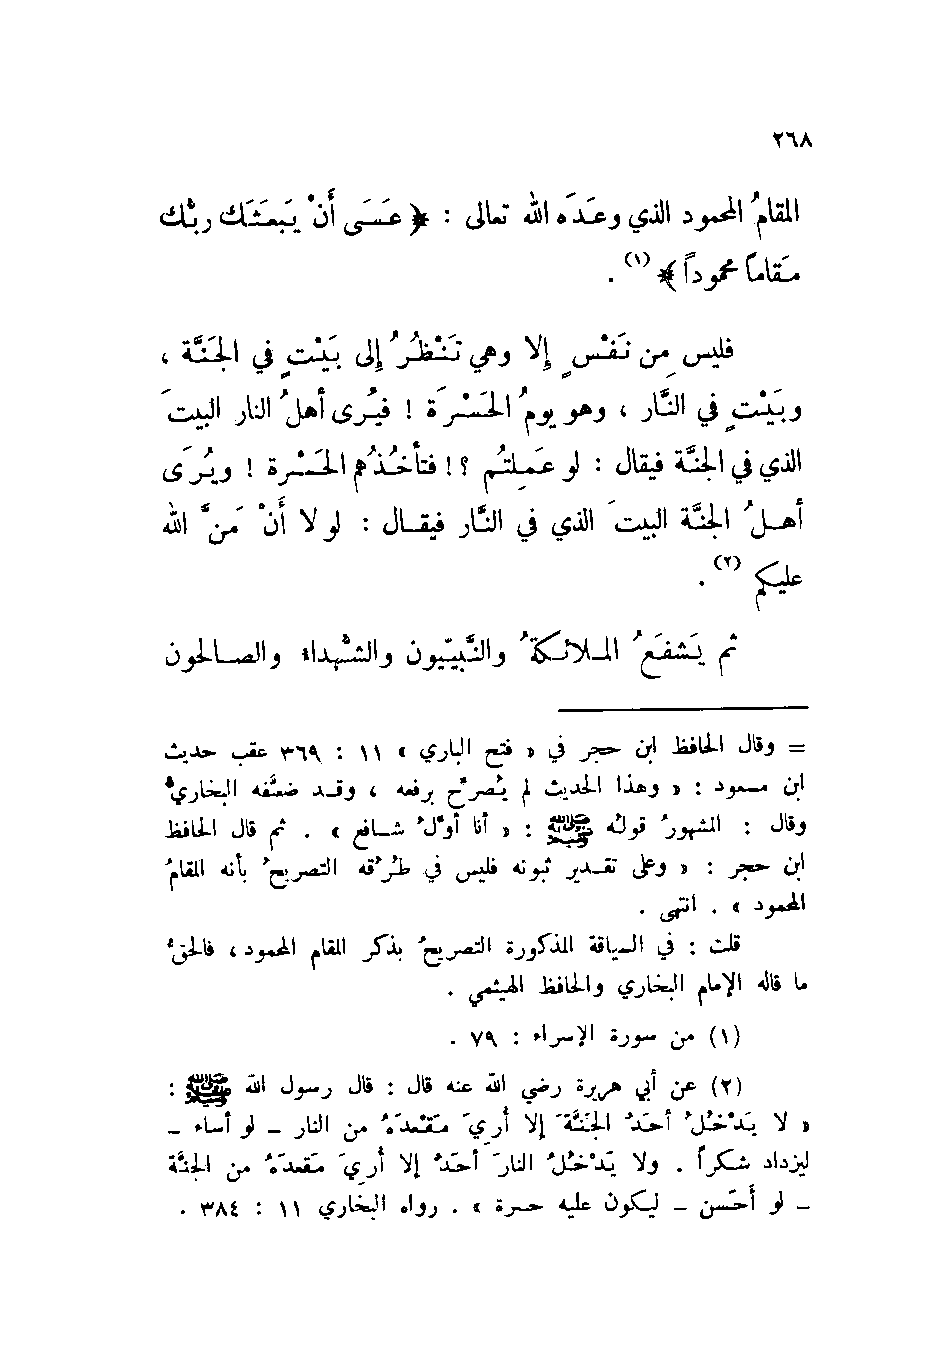 ٢٦٨
المقامُ المحمود الذي وعَدَه الله تعالى : ﴿ عَسَى أَنْ يَبعَثَك ربُّك
مَقاماً محموداً ﴾ (١) .
فليس مِن نَفْسٍ إلا وهي تَنْظُرُ إلى بَيْتٍ في الجَنَّة ،
وبَيْتٍ في النَّار ، وهو يومُ الحَسْرَة ! فيُرى أهلُ النار البيتَ
الذي في الجنَّة فيقال : لو عَمِلتُم ؟! فتأخُذُهم الحَسْرة ! ويُرَى
أهلُ الجنَّة البيتَ الذي في النَّار فيقال : لولا أنْ مَنَّ الله
عليكم (٢) .
ثم يَشفَعُ الملائكةُ والنَّبيّون والشُّهداء والصالحون
= وقال الحافظ ابن حجر في « فتح الباري » ١١ : ٣٦٩ عقب حديث
ابن مسعود : « وهذا الحديث لم يُصرِّح برفعه ، وقد ضعَّفه البخاريُّ
وقال : المشهورُ قولُه ﷺ : « أنا أوّلُ شافع » . ثم قال الحافظ
ابن حجر : « وعلى تقدير ثبوته فليس في طُرُقه التصريحُ بأنه المقامُ
المحمود » . انتهى .
قلت : في السياقة المذكورة التصريحُ بذكر المقام المحمود ، فالحقُّ
ما قاله الإمام البخاري والحافظ الهيثمي .
(١) من سورة الإسراء : ٧٩ .
(٢) عن أبي هريرة رضي الله عنه قال : قال رسول الله ﷺ :
« لا يَدْخُلُ أحَدٌ الجَنَّةَ إلا أُرِيَ مَقْعَدَهُ من النار ـ لو أساء ـ
ليزداد شكراً . ولا يَدْخُلُ النارَ أحَدٌ إلا أُرِيَ مَقعدَهُ من الجنَّة
ـ لو أحسَن ـ ليكون عليه حسرة » . رواه البخاري ١١ : ٣٨٤ .